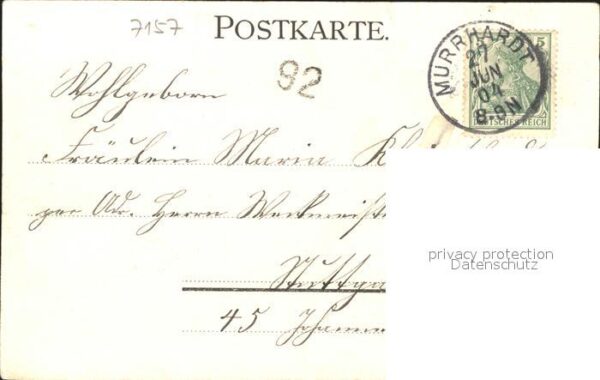 7157
POSTKARTE.
92
MURRHARDT
27
JUN
04
8-9N
5
DEUTSCHES REICH
Wohlgeborn
Fräulein Maria
per Adr. Herrn Werkmeiste
Stuttga
45 Johanne
privacy protection
Datenschutz